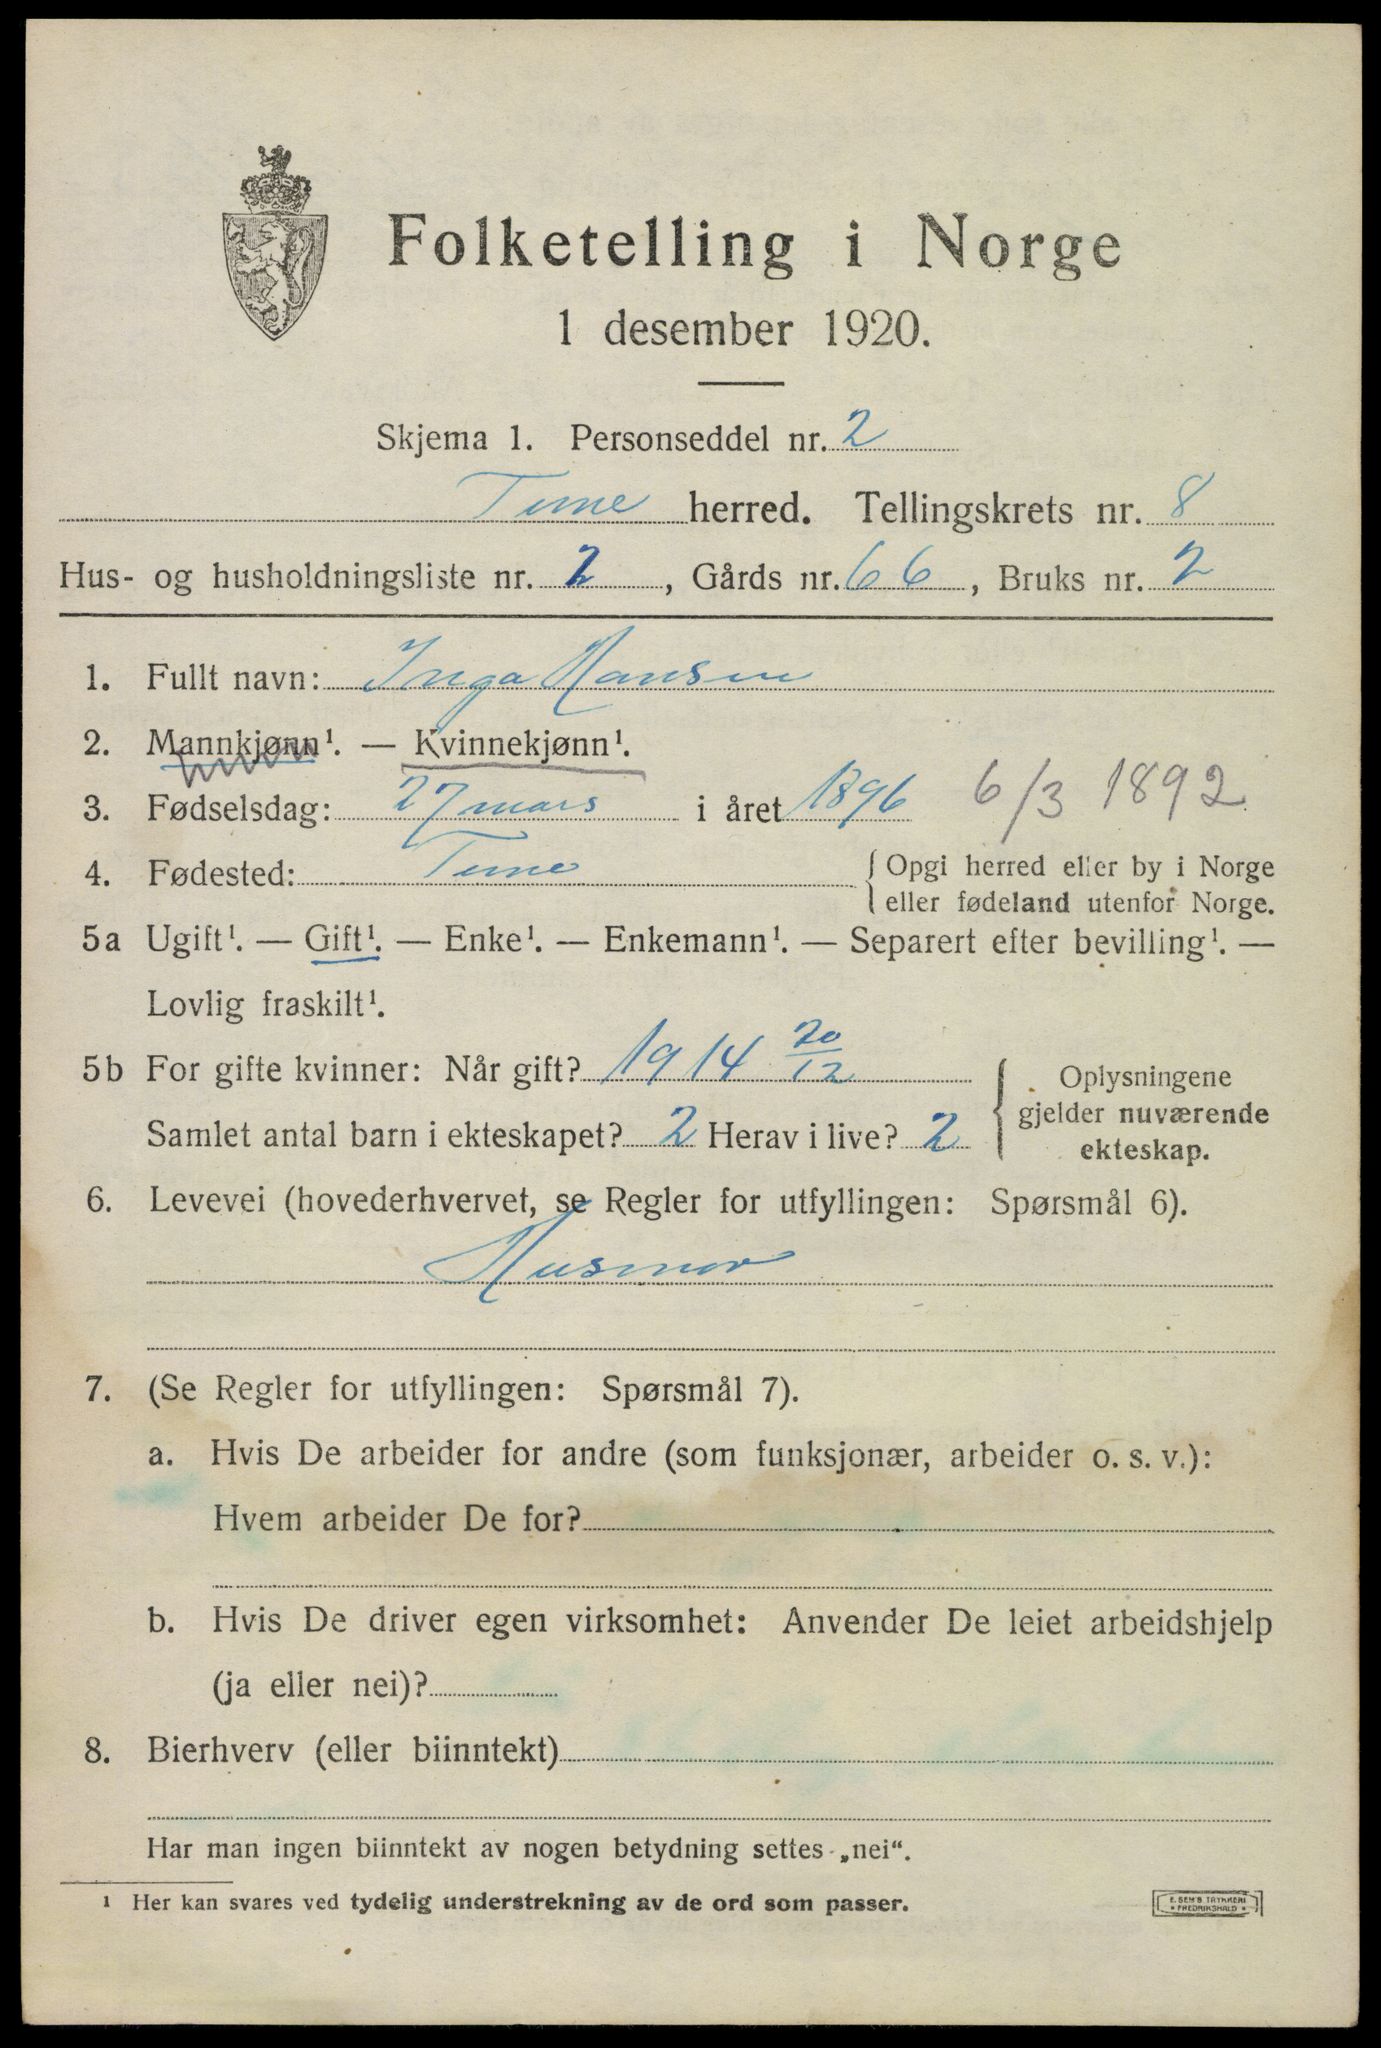 Folketelling i Norge
1 desember 1920.
Skjema 1. Personseddel nr. 2
Tune herred. Tellingskrets nr. 8
Hus- og husholdningsliste nr. 2, Gårds nr. 66, Bruks nr. 2
1. Fullt navn: Inga Hansen
2. Mannkjønn¹. — Kvinnekjønn¹.
3. Fødselsdag: 27 mars i året 1896 6/3 1892
4. Fødested: Tune { Opgi herred eller by i Norge
eller fødeland utenfor Norge.
5a Ugift¹. — Gift¹. — Enke¹. — Enkemann¹. — Separert efter bevilling¹. —
Lovlig fraskilt¹.
5b For gifte kvinner: Når gift? 1914 20/12
Samlet antal barn i ekteskapet? 2 Herav i live? 2
{ Oplysningene
gjelder nuværende
ekteskap.
6. Levevei (hovederhvervet, se Regler for utfyllingen: Spørsmål 6).
Husmor
7. (Se Regler for utfyllingen: Spørsmål 7).
a. Hvis De arbeider for andre (som funksjonær, arbeider o. s. v.):
Hvem arbeider De for?
b. Hvis De driver egen virksomhet: Anvender De leiet arbeidshjelp
(ja eller nei)?
8. Bierhverv (eller biinntekt)
Har man ingen biinntekt av nogen betydning settes „nei“.
¹ Her kan svares ved tydelig understrekning av de ord som passer.
E. SEM'S TRYKKERI
* FREDRIKSHALD *